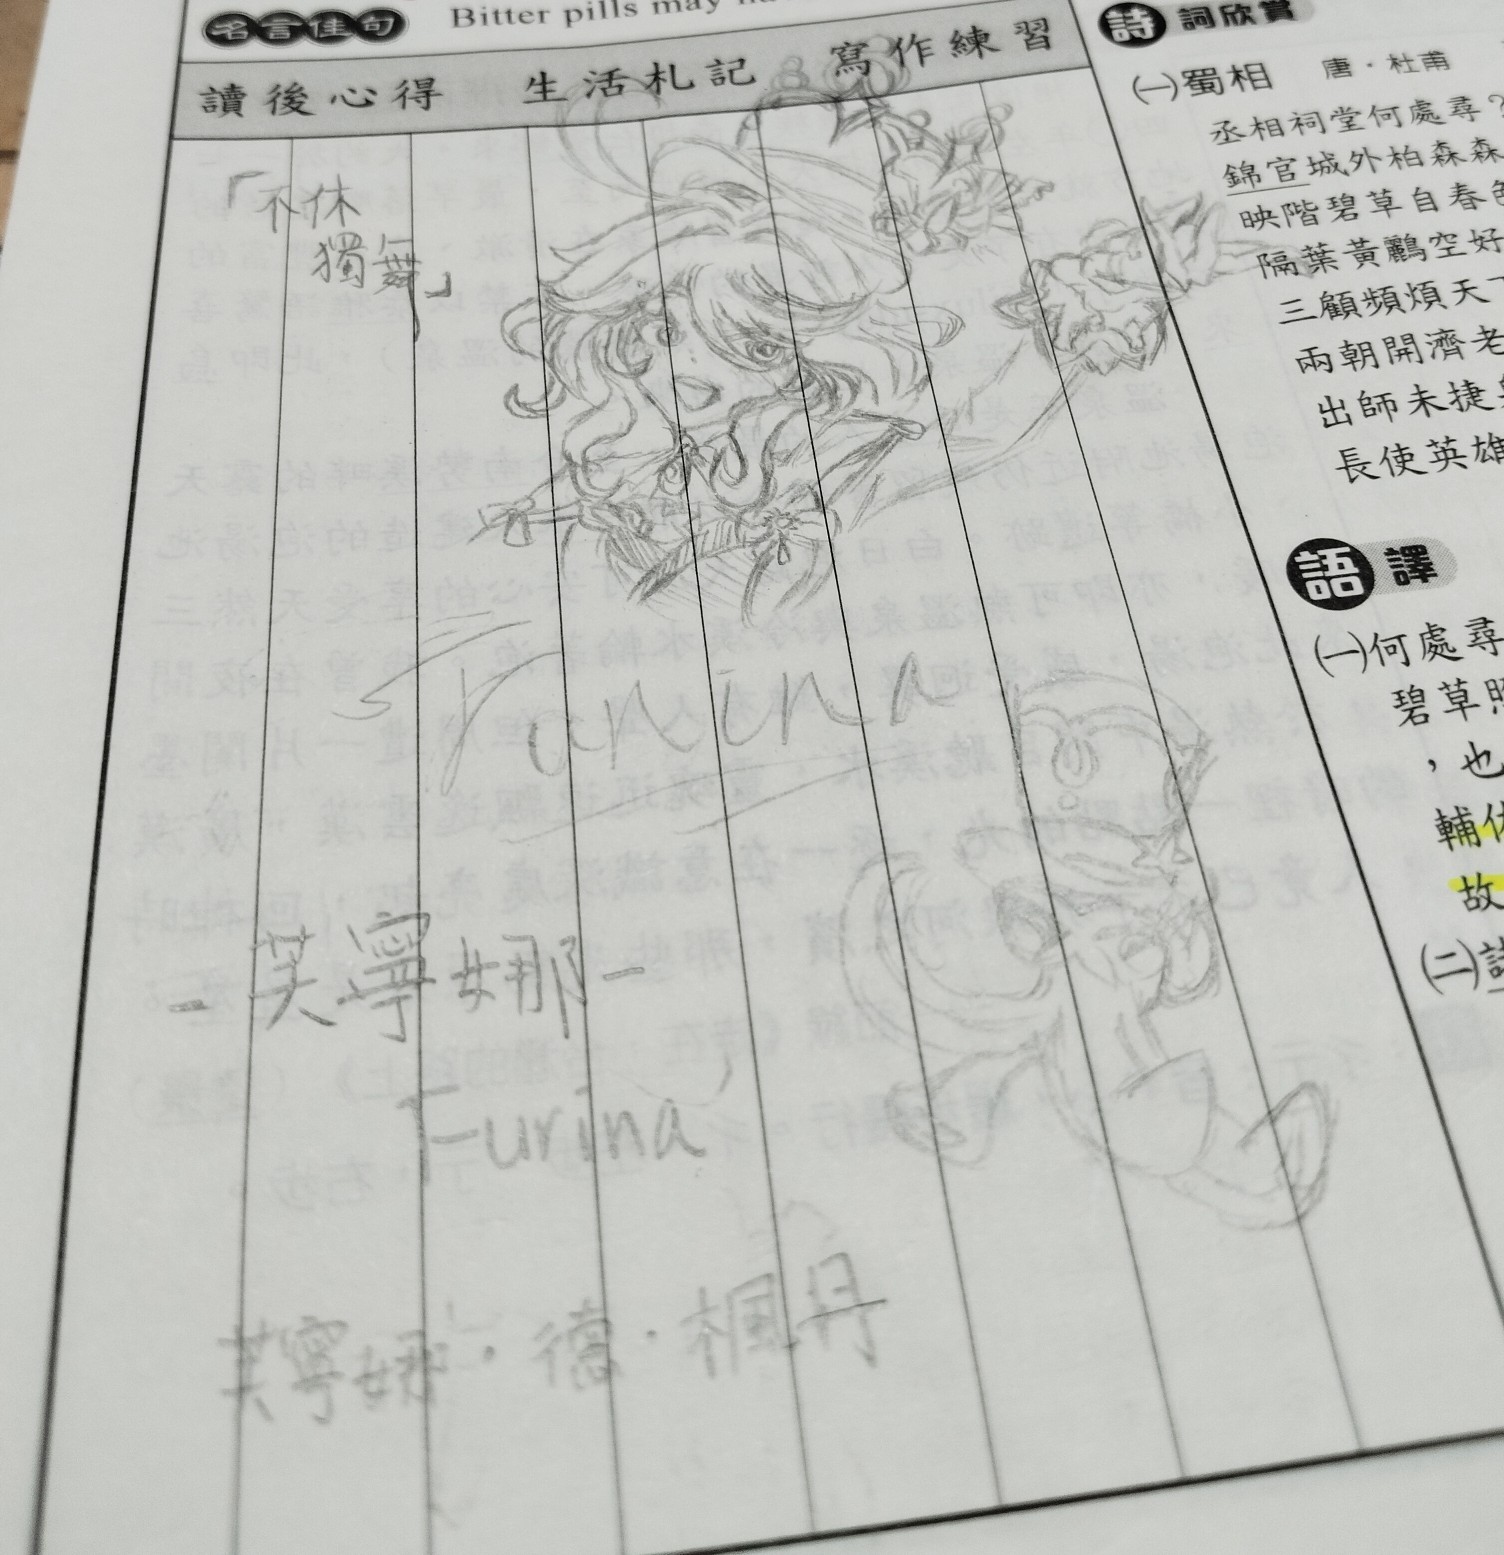 名言佳句
Bitter pills may
讀後心得 生活札記 寫作練習
「不休
獨舞」
Furina
-芙寧娜-
Furina
芙寧娜・德・楓丹
詩詞欣賞
㈠蜀相 唐・杜甫
丞相祠堂何處尋？
錦官城外柏森森
映階碧草自春色
隔葉黃鸝空好
三顧頻煩天下
兩朝開濟老
出師未捷
長使英雄
語譯
㈠何處尋
碧草照
，也
輔佐
故
㈡